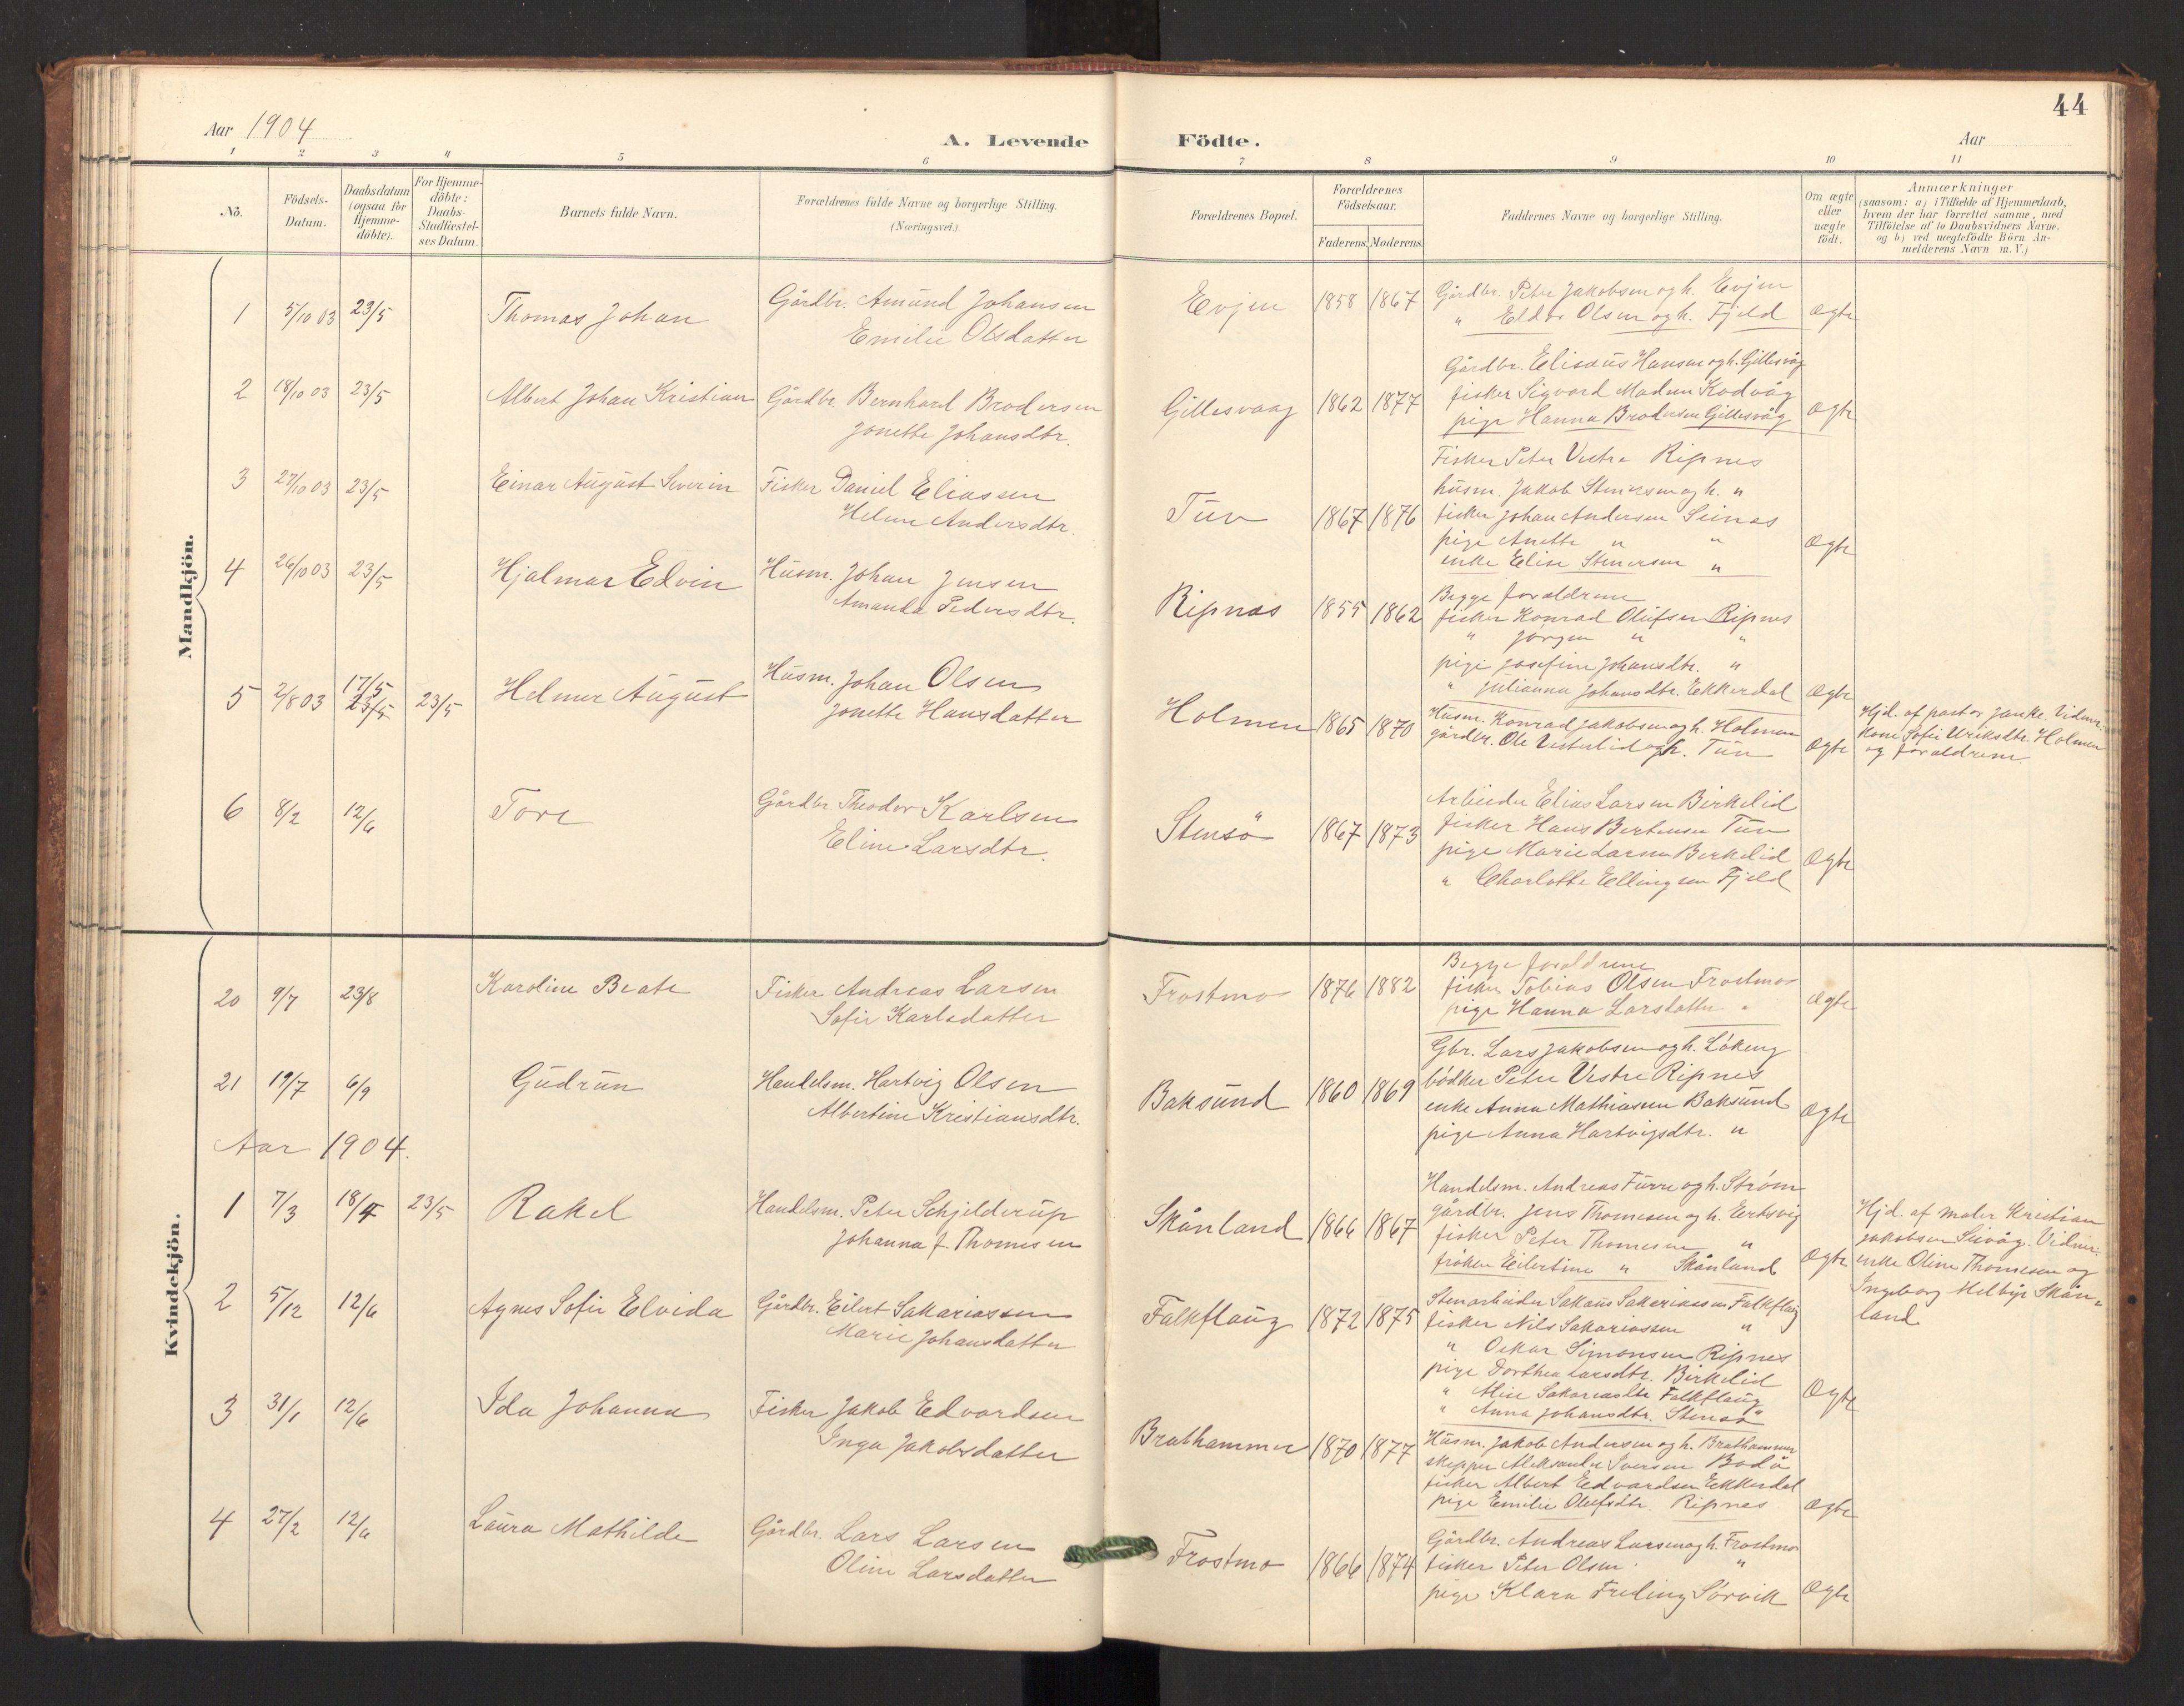 44
Aar 1904
A. Levende Födte.
Aar
1 2 3 4 5 6 7 8 9 10 11
No.
Födsels-
Datum.
Daabsdatum
(ogsaa for
Hjemme-
döbte).
For Hjemme-
döbte:
Daabs-
Stadfæstel-
ses Datum.
Barnets fulde Navn.
Forældrenes fulde Navne og borgerlige Stilling.
(Næringsvei.)
Forældrenes Bopæl.
Forældrenes
Födselsaar.
Faderens. Moderens.
Faddernes Navne og borgerlige Stilling.
Om ægte
eller
uægte
födt.
Anmærkninger
(saasom: a) i Tilfælde af Hjemmedaab,
hvem der har forrettet samme, med
Tilföielse af to Daabsvidners Navne.
og b) ved uægtefödte Börn An-
melderens Navn m. V.)
Mandkjön.
1 5/10 03 23/5 Thomas Johan
Gårdbr. Amund Johansen
Emilie Olsdatter
Evjen 1858 1867
Gårdbr. Peter Jakobsen og h. Evjen
" Eldor Olsen og h. Fjeld
Ægte
2 18/10 03 23/5 Albert Johan Kristian
Gårdbr. Bernhard Brodersen
Jonette Johansdtr.
Gillesvaag 1862 1877
Gårdbr. Elisæus Hansen og h. Gillesvåg
fisker Sigvard Madsen Kodvåg
pige Hanna Brodersen Gillesvåg
Ægte
3 27/10 03 23/5 Einar August Severin
Fisker Daniel Eliassen
Helene Andersdtr.
Tuv 1867 1876
Fisker Peter Vestre Ripnes
husm. Jakob Stenersen og h. "
fisker Johan Andersen Seines
pige Anette " "
enke Elise Stenersen "
Ægte
4 26/10 03 23/5 Hjalmar Edvin
Husm. Johan Jensen
Amanda Pedersdtr.
Ripnes 1855 1862
Begge forældrene
fisker Konrad Olufsen Ripnes
" Jørgen " "
pige Josefine Johansdtr. "
" Julianna Johansdtr. Ekkerdal
Ægte
5 2/8 03 17/5 23/5 23/5 Helmer August
Husm. Johan Olsen
Jonette Hansdatter
Holmen 1865 1870
Husm. Konrad Jakobsen og h. Holmen
gårdbr. Ole Vesterlid og h. Tuv
Ægte
Hjd. af pastor Janke. Vidner:
Kone Sofie Ulriksdtr. Holmen
og forældrene.
6 8/2 12/6 Tore
Gårdbr Theodor Karlsen
Eline Larsdtr.
Stensö 1867 1873
Arbeider Elias Larsen Birkelid
fisker Hans Bertensen Tuv
pige Marie Larsen Birkelid
" Charlotte Ellingsen Fjeld
Ægte
Kvindekjön.
20 9/7 23/8 Karoline Beate
Fisker Andreas Larsen
Sofie Karlsdatter
Frostmo 1876 1882
Begge forældrene
fisker Tobias Olsen Frostmo
pige Hanna Larsdatter "
Ægte
21 19/7 6/9 Gudrun
Handelsm. Hartvig Olsen
Albertine Kristiansdtr.
Baksund 1860 1869
Gbr. Lars Jakobsen og h. Lökeng
bödker Peter Vestre Ripnes
enke Anna Mathiasen Baksund
pige Anna Hartvigsdtr. "
Ægte
Aar 1904.
1 7/3 18/4 23/5 Rakel
Handelsm. Peter Schjelderup
Johanna f. Thomesen
Skånland 1866 1867
Handelsm. Andreas Furre og h. Strøm
gårdbr. Jens Thomesen og h. Eertsvig
fisker Peter Thomesen "
fröken Eilertine " Skånland
Ægte
Hjd. af maler Kristian
Jakobsen Seivåg. Vidner:
enke Oline Thomesen og
Ingeborg Melbye Skån-
land
2 5/12 12/6 Agnes Sofie Elvida
Gårdbr. Eilert Sakariassen
Marie Johansdatter
Falkflaug 1872 1875
Stenarbeider Sakæus Sakariassen Falkflaug
fisker Nils Sakariassen "
" Oskar Simonsen Ripnes
pige Dorthea Larsdtr. Birkelid
" Alise Sakariasdtr Falkflaug
" Anna Johansdtr. Stensö
Ægte
3 31/1 12/6 Ida Johanna
Fisker Jakob Edvardsen
Inga Jakobsdatter
Brathammer 1870 1877
Husm. Jakob Andersen og h. Brathammer
skipper Aleksander Iversen Bodö
fisker Albert Edvardsen Ekkerdal
pige Emilie Olufsdtr. Ripnes
Ægte
4 27/2 12/6 Laura Mathilde
Gårdbr. Lars Larsen
Oline Larsdatter
Frostmo 1866 1874
Gårdbr. Andreas Larsen og h. Frostmo
fisker Peter Olsen "
pige Klara Freding Sörvik
Ægte